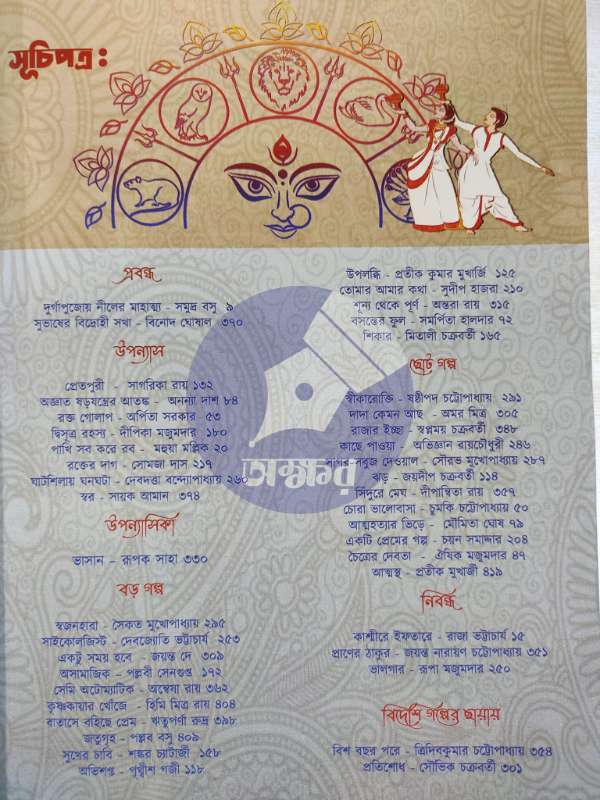 সূচিপত্র :
প্রবন্ধ
দুর্গাপুজোয় নীলের মাহাত্ম্য - সমুদ্র বসু ৯
সুভাষের বিদ্রোহী সখা - বিনোদ ঘোষাল ৩৭০
উপন্যাস
প্রেতপুরী - সাগরিকা রায় ১৩২
অজ্ঞাত ষড়যন্ত্রের আতঙ্ক - অনন্যা দাশ ৮৪
রক্ত গোলাপ - অর্পিতা সরকার ৫৩
দ্বিসূত্র রহস্য - দীপিকা মজুমদার ১৮০
পাখি সব করে রব - মহুয়া মল্লিক ২০
রক্তের দাগ - সোমজা দাস ২১৭
ঘাটশিলায় ঘনঘটা - দেবদত্তা বন্দ্যোপাধ্যায় ২৬০
স্বর - সায়ক আমান ৩৭৪
উপন্যাসিকা
ভাসান - রূপক সাহা ৩৩০
বড় গল্প
স্বজনহারা - সৈকত মুখোপাধ্যায় ২৯৫
সাইকোলজিস্ট - দেবজ্যোতি ভট্টাচার্য ২৫৩
একটু সময় হবে - জয়ন্ত দে ৩০৯
অসামাজিক - পল্লবী সেনগুপ্ত ১৭২
সেমি অটোম্যাটিক - অন্বেষা রায় ৩৬২
কৃষ্ণকায়ার খোঁজে - হিমি মিত্র রায় ৪০৪
বাতাসে বহিছে প্রেম - ঋতুপর্ণা রুদ্র ৩৯৮
জতুগৃহ - পল্লব বসু ৪০৯
সুখের চাবি - শঙ্কর চ্যাটার্জী ১৫৮
অভিশপ্ত - পৃথ্বীশ গজী ১১৮
উপলব্ধি - প্রতীক কুমার মুখার্জি ১২৫
তোমার আমার কথা - সুদীপ হাজরা ২১০
শূন্য থেকে পূর্ণ - অন্তরা রায় ৩১৫
বসন্তের ফুল - সমর্পিতা হালদার ৭২
শিকার - মিতালী চক্রবর্তী ১৬৫
ছোট গল্প
স্বীকারোক্তি - ষষ্ঠীপদ চট্টোপাধ্যায় ২৯১
দাদা কেমন আছ - অমর মিত্র ৩০৫
রাজার ইচ্ছা - স্বপ্নময় চক্রবর্তী ৩৪৮
কাছে পাওয়া - অভিজ্ঞান রায়চৌধুরী ২৪৬
সবুজ দেওয়াল - সৌরভ মুখোপাধ্যায় ২৮৭
ঝড় - জয়দীপ চক্রবর্তী ১১৪
সিঁদুরে মেঘ - দীপান্বিতা রায় ৩৫৭
চোরা ভালোবাসা - চুমকি চট্টোপাধ্যায় ৫০
আত্মহত্যার ভিড়ে - মৌমিতা ঘোষ ৭৯
একটি প্রেমের গল্প - চয়ন সমাদ্দার ২০৪
চৈত্রের দেবতা - ঐষিক মজুমদার ৪৭
আত্মস্থ - প্রতীক মুখার্জী ৪১৯
নিবন্ধ
কাশ্মীরে ইফতারে - রাজা ভট্টাচার্য ১৫
প্রাণের ঠাকুর - জয়ন্ত নারায়ণ চট্টোপাধ্যায় ৩৫১
ভালগার - রূপা মজুমদার ২৫০
বিদেশি গল্পের ছায়ায়
বিশ বছর পরে - ত্রিদিবকুমার চট্টোপাধ্যায় ৩৫৪
প্রতিশোধ - সৌভিক চক্রবর্তী ৩০১
অক্ষর